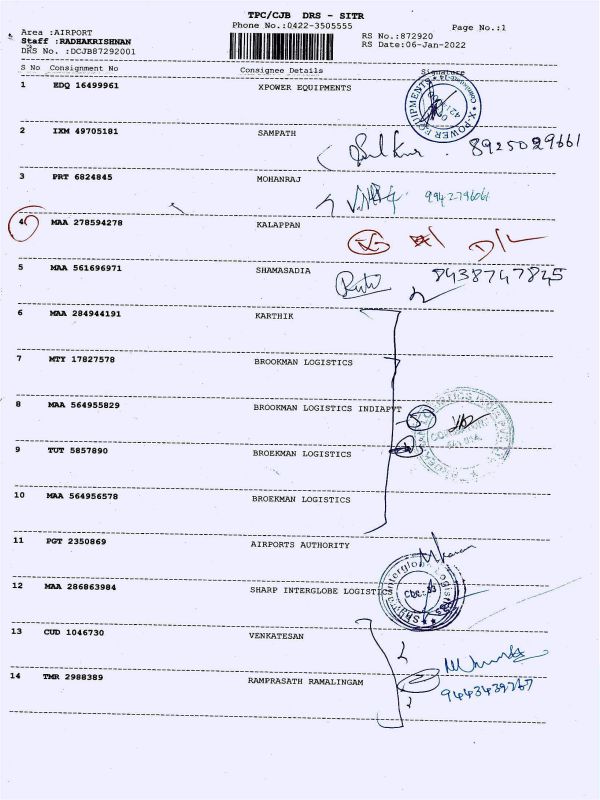 TPC/CJB DRS - SITR
Phone No.:0422-3505555
Page No.:1
Area :AIRPORT
Staff :RADHAKRISHNAN
DRS No. :DCJB87292001
RS No.:872920
RS Date:06-Jan-2022
S No Consignment No Consignee Details Signature
1 EDQ 16499961 XPOWER EQUIPMENTS
X-POWER EQUIPMENTS
2 IXM 49705181 SAMPATH
8925029661
3 PRT 6824845 MOHANRAJ
9942796061
4 MAA 278594278 KALAPPAN
D/L
5 MAA 561696971 SHAMASADIA
8438747845
6 MAA 284944191 KARTHIK
7 MTY 17827578 BROOKMAN LOGISTICS
8 MAA 564955829 BROOKMAN LOGISTICS INDIAPVT
5
9 TUT 5857890 BROEKMAN LOGISTICS
10 MAA 564956578 BROEKMAN LOGISTICS
11 PGT 2350869 AIRPORTS AUTHORITY
12 MAA 286863984 SHARP INTERGLOBE LOGISTICS
13 CUD 1046730 VENKATESAN
14 TMR 2988389 RAMPRASATH RAMALINGAM
2
9443439767